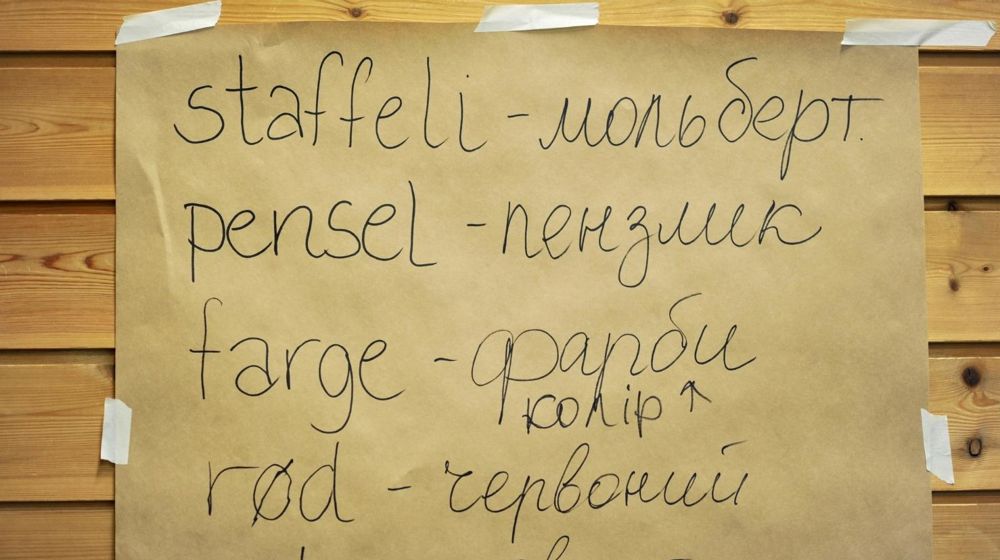 staffeli - мольберт.
pensel - пензлик
farge - фарби
колір ↑
rød - червоний